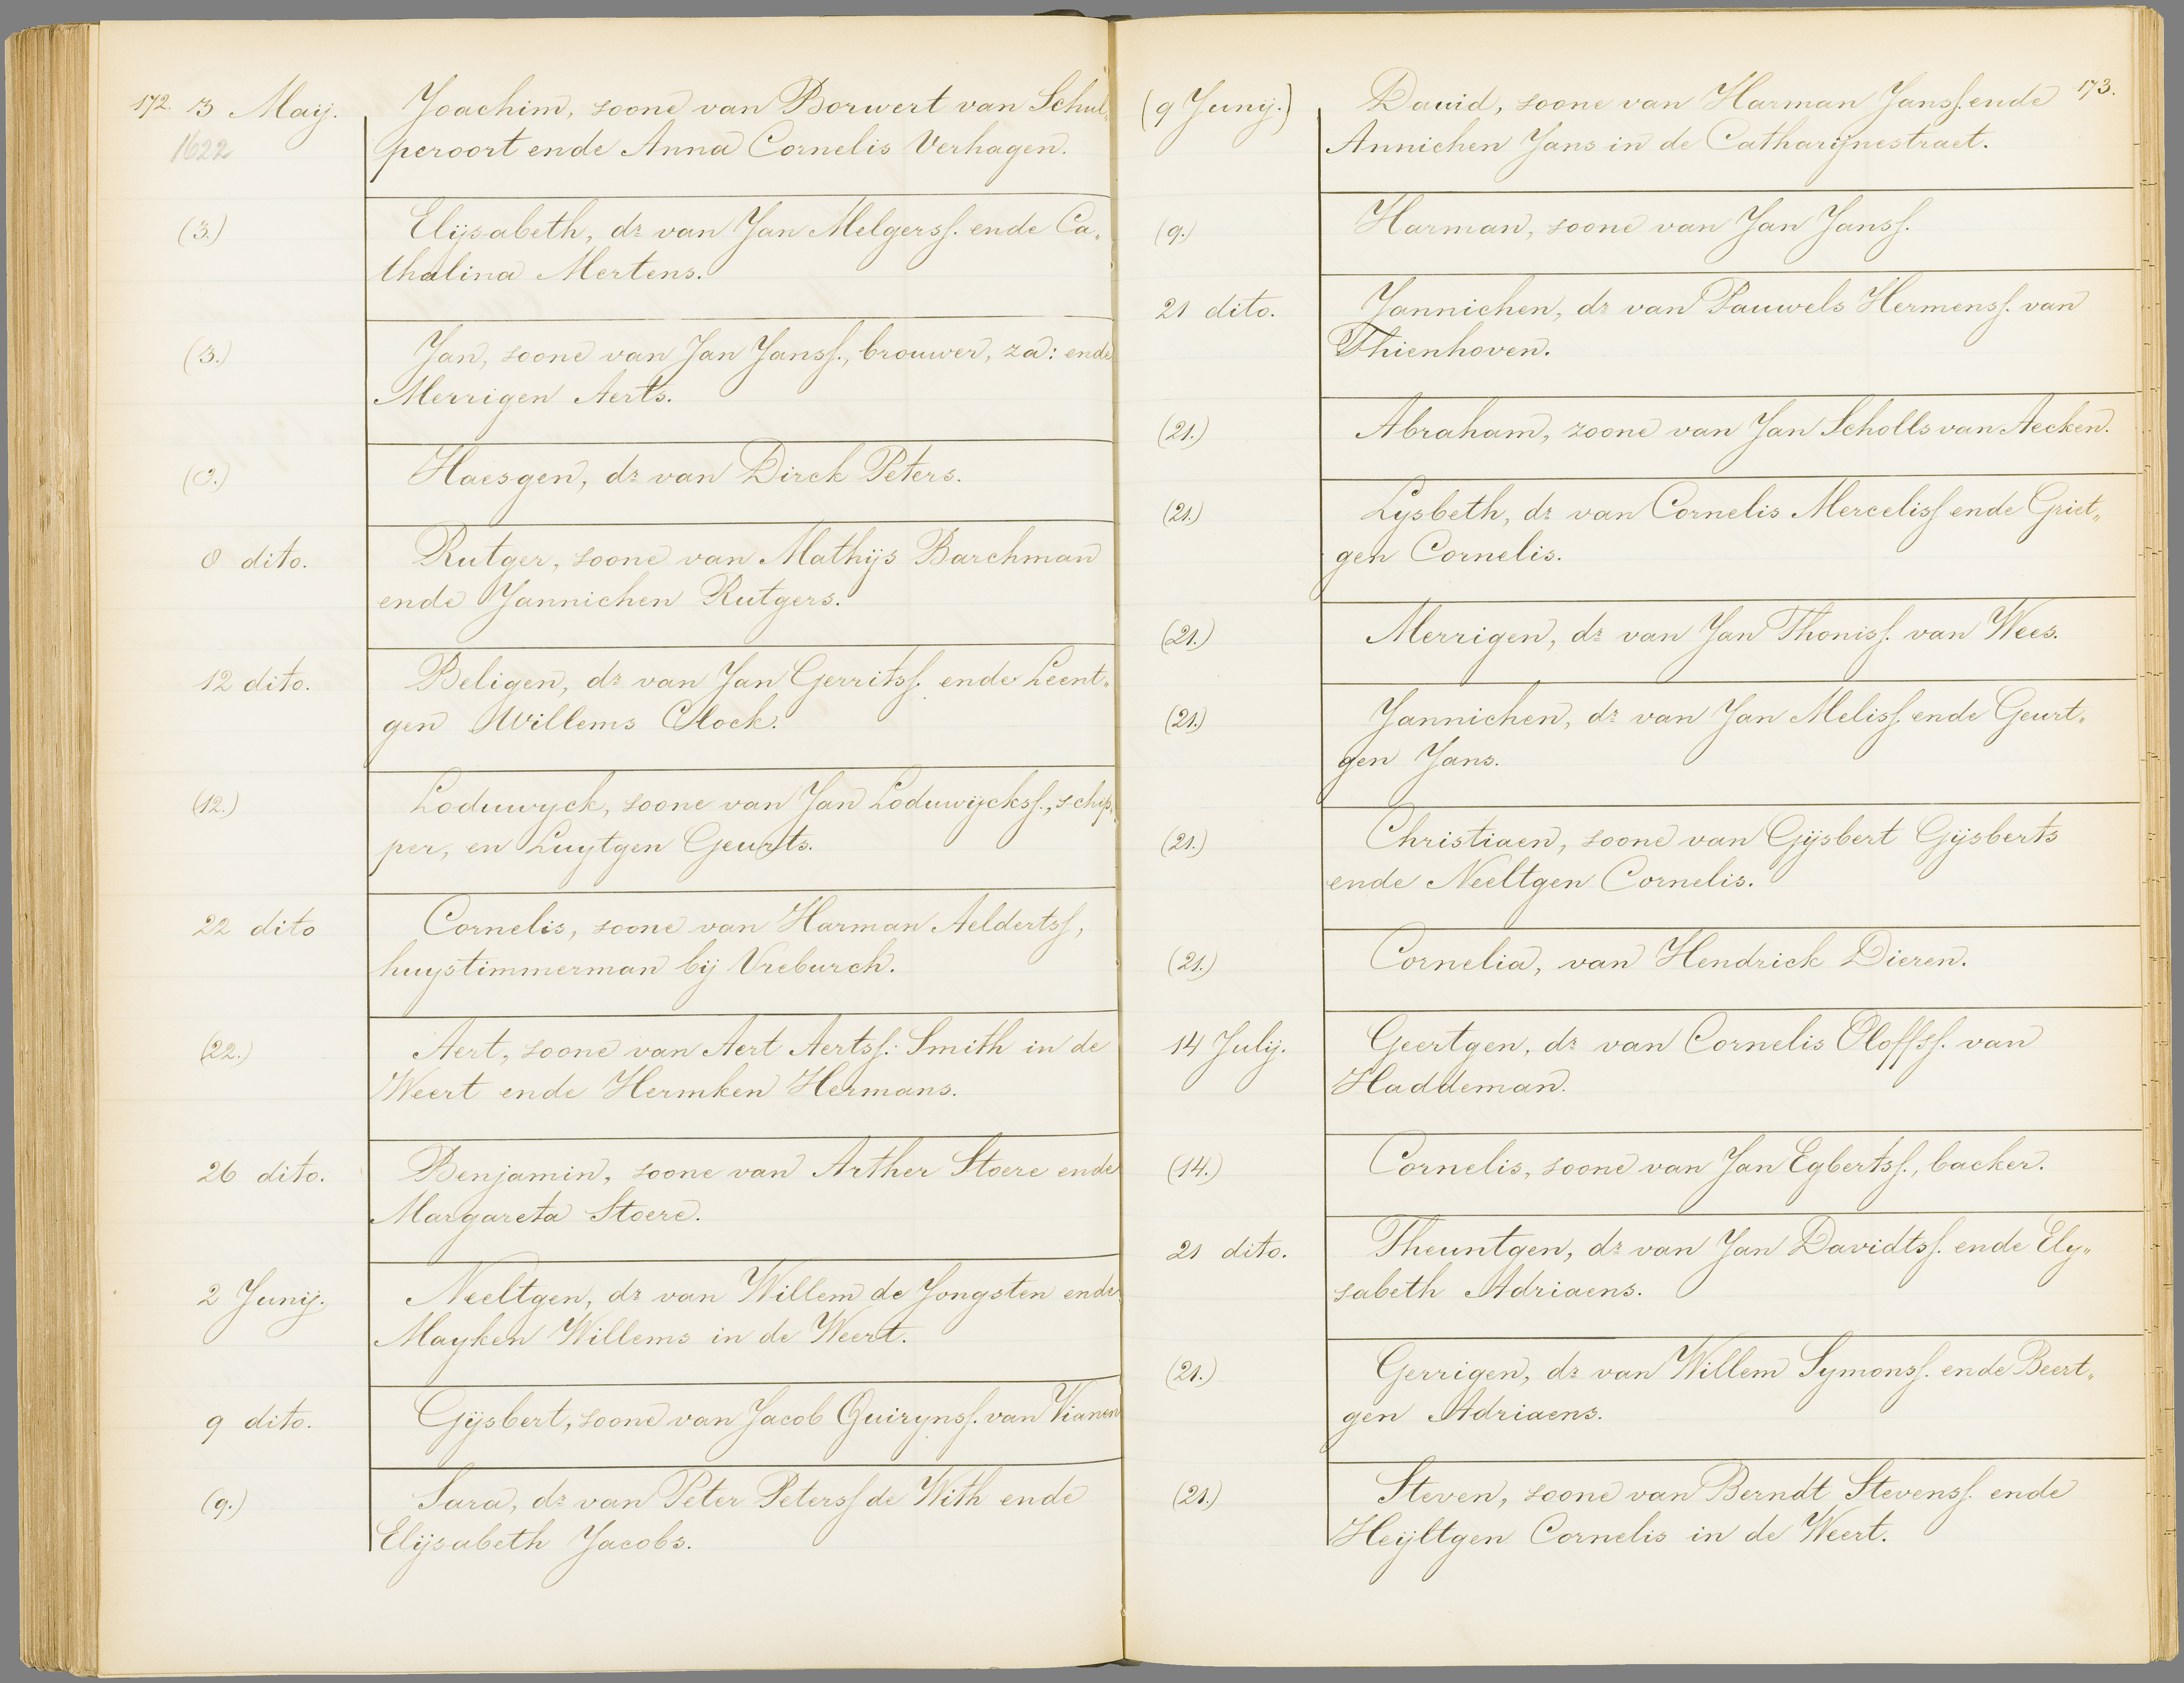 172. 3 Maij. Joachim, soone van Borwert van Schul„
1622 peroort ende Anna Cornelis Verhagen.
(3.) Elijsabeth, dr van Jan Melgerss. ende Ca„
thalina Mertens.
(3.) Jan, soone van Jan Janss., brouwer, za: ende
Merrigen Aerts.
(3.) Haesgen, dr van Dirck Peters.
8 dito. Rutger, soone van Mathijs Barchman
ende Jannichen Rutgers.
12 dito. Beligen, dr van Jan Gerritss. ende Leent„
gen Willems Clock.
(12.) Loduwyck, soone van Jan Loduwijckss., schip„
per, en Luytgen Geurts.
22 dito Cornelis, soone van Harman Aeldertss,
huystimmerman bij Vreburch.
(22.) Aert, soone van Aert Aertss. Smith in de
Weert ende Hermken Hermans.
26 dito. Benjamin, soone van Arther Stoere ende
Margareta Stoere.
2 Junij. Neeltgen, dr van Willem de Jongsten ende
Mayken Willems in de Weert.
9 dito. Gijsbert, soone van Jacob Quirynss. van Vianen
(9.) Sara, dr van Peter Peterss de With ende
Elijsabeth Jacobs.
(9 Junij.) Dauid, soone van Harman Janss. ende 173.
Annichen Jans in de Catharijnestraet.
(9.) Harman, soone van Jan Janss.
21 dito. Jannichen, dr van Pauwels Hermenss. van
Thienhoven.
(21.) Abraham, zoone van Jan Scholls van Aecken.
(21.) Lysbeth, dr van Cornelis Merceliss ende Griet„
gen Cornelis.
(21.) Merrigen, dr van Jan Thoniss. van Wees.
(21.) Jannichen, dr van Jan Meliss. ende Geurt„
gen Jans.
(21.) Christiaen, soone van Gijsbert Gijsberts
ende Neeltgen Cornelis.
(21.) Cornelia, van Hendrick Dieren.
14 Julij. Geertgen, dr van Cornelis Oloffss. van
Haddeman.
(14.) Cornelis, soone van Jan Egbertss., backer.
21 dito. Theuntgen, dr van Jan Davidtss. ende Ely„
sabeth Adriaens.
(21.) Gerrigen, dr van Willem Symonss. ende Beert„
gen Adriaens.
(21.) Steven, soone van Berndt Stevenss. ende
Heijltgen Cornelis in de Weert.